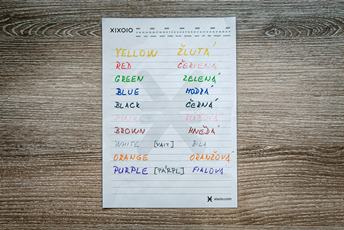 XIXOIO
YELLOW ŽLUTÁ
RED ČERVENÁ
GREEN ZELENÁ
BLUE MODRÁ
BLACK ČERNÁ
PINK RŮŽOVÁ
BROWN HNĚDÁ
WHITE [VAIT] BÍLÁ
ORANGE ORANŽOVÁ
PURPLE [PÁRPL] FIALOVÁ
xixoio.com